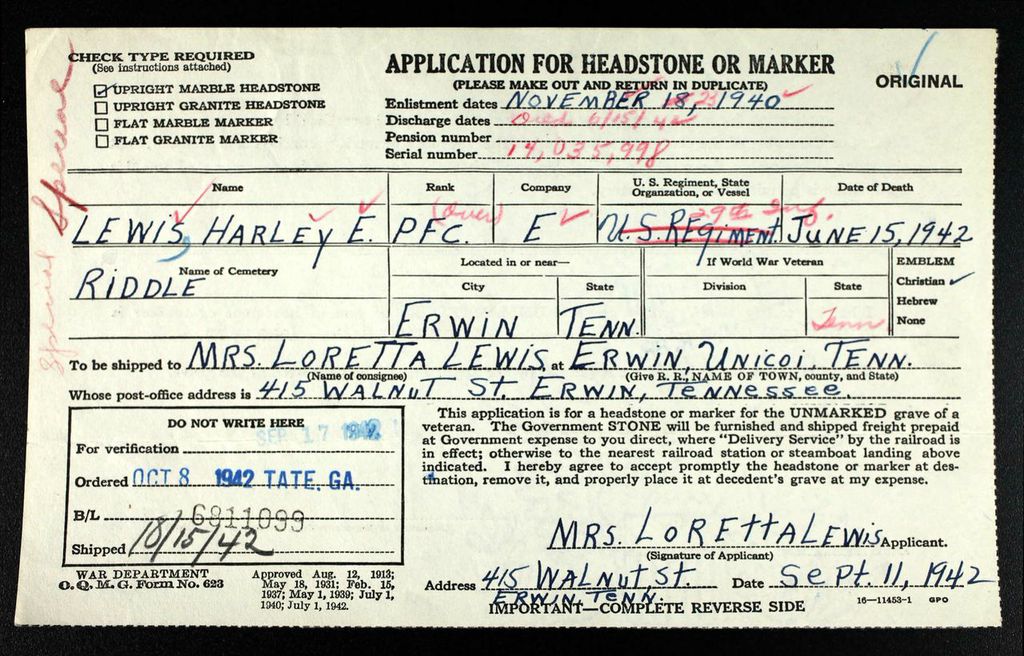 CHECK TYPE REQUIRED
(See instructions attached)
☑ UPRIGHT MARBLE HEADSTONE
☐ UPRIGHT GRANITE HEADSTONE
☐ FLAT MARBLE MARKER
☐ FLAT GRANITE MARKER
Special
Special
APPLICATION FOR HEADSTONE OR MARKER
(PLEASE MAKE OUT AND RETURN IN DUPLICATE)
ORIGINAL
Enlistment dates NOVEMBER 18, 23, 1940
Discharge dates Died 6/15/42
Pension number
Serial number 14,035,998
Name Rank Company U. S. Regiment, State Organzation, or Vessel Date of Death
(Over) 29th Inf.
LEWIS, HARLEY E. PFC. E U.S. REGIMENT. JUNE 15, 1942
Name of Cemetery Located in or near— If World War Veteran EMBLEM
RIDDLE City State Division State Christian ✓
Hebrew
ERWIN TENN. Tenn None
To be shipped to MRS. LORETTA LEWIS, at ERWIN, UNICOI, TENN.
(Name of consignee) (Give R. R., NAME OF TOWN, county, and State)
Whose post-office address is 415 WALNUT ST. ERWIN, TENNESSEE.
DO NOT WRITE HERE
SEP 17 1942
For verification
Ordered OCT 8 1942 TATE, GA.
B/L 6811099
Shipped 10/15/42
This application is for a headstone or marker for the UNMARKED grave of a
veteran. The Government STONE will be furnished and shipped freight prepaid
at Government expense to you direct, where "Delivery Service" by the railroad is
in effect; otherwise to the nearest railroad station or steamboat landing above
indicated. I hereby agree to accept promptly the headstone or marker at des-
tination, remove it, and properly place it at decedent's grave at my expense.
MRS. LORETTA LEWIS Applicant.
(Signature of Applicant)
Address 415 WALNUT, ST. Date SEPT. 11, 1942
ERWIN, TENN.
WAR DEPARTMENT
O. Q. M. G. Form No. 623
Approved Aug. 12, 1913;
May 18, 1931; Feb. 15,
1937; May 1, 1939; July 1,
1940; July 1, 1942.
IMPORTANT—COMPLETE REVERSE SIDE
16—11453-1 GPO